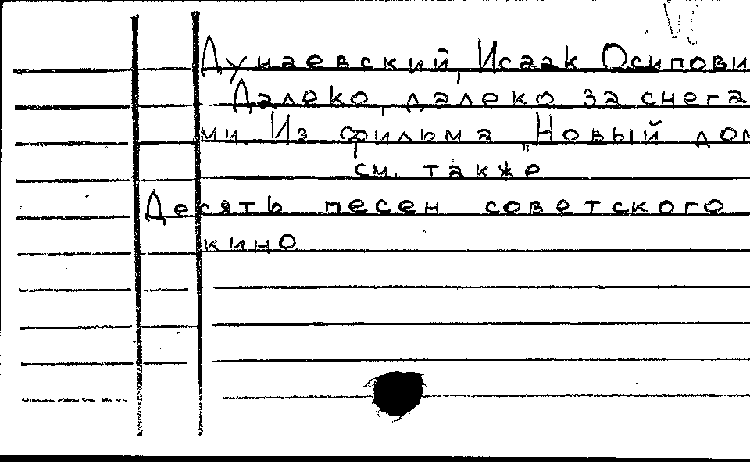 Дунаевский, Исаак Осипови
Далеко, далеко за снега
ми. Из фильма „Новый дом
см. также
Десять песен советского
кино